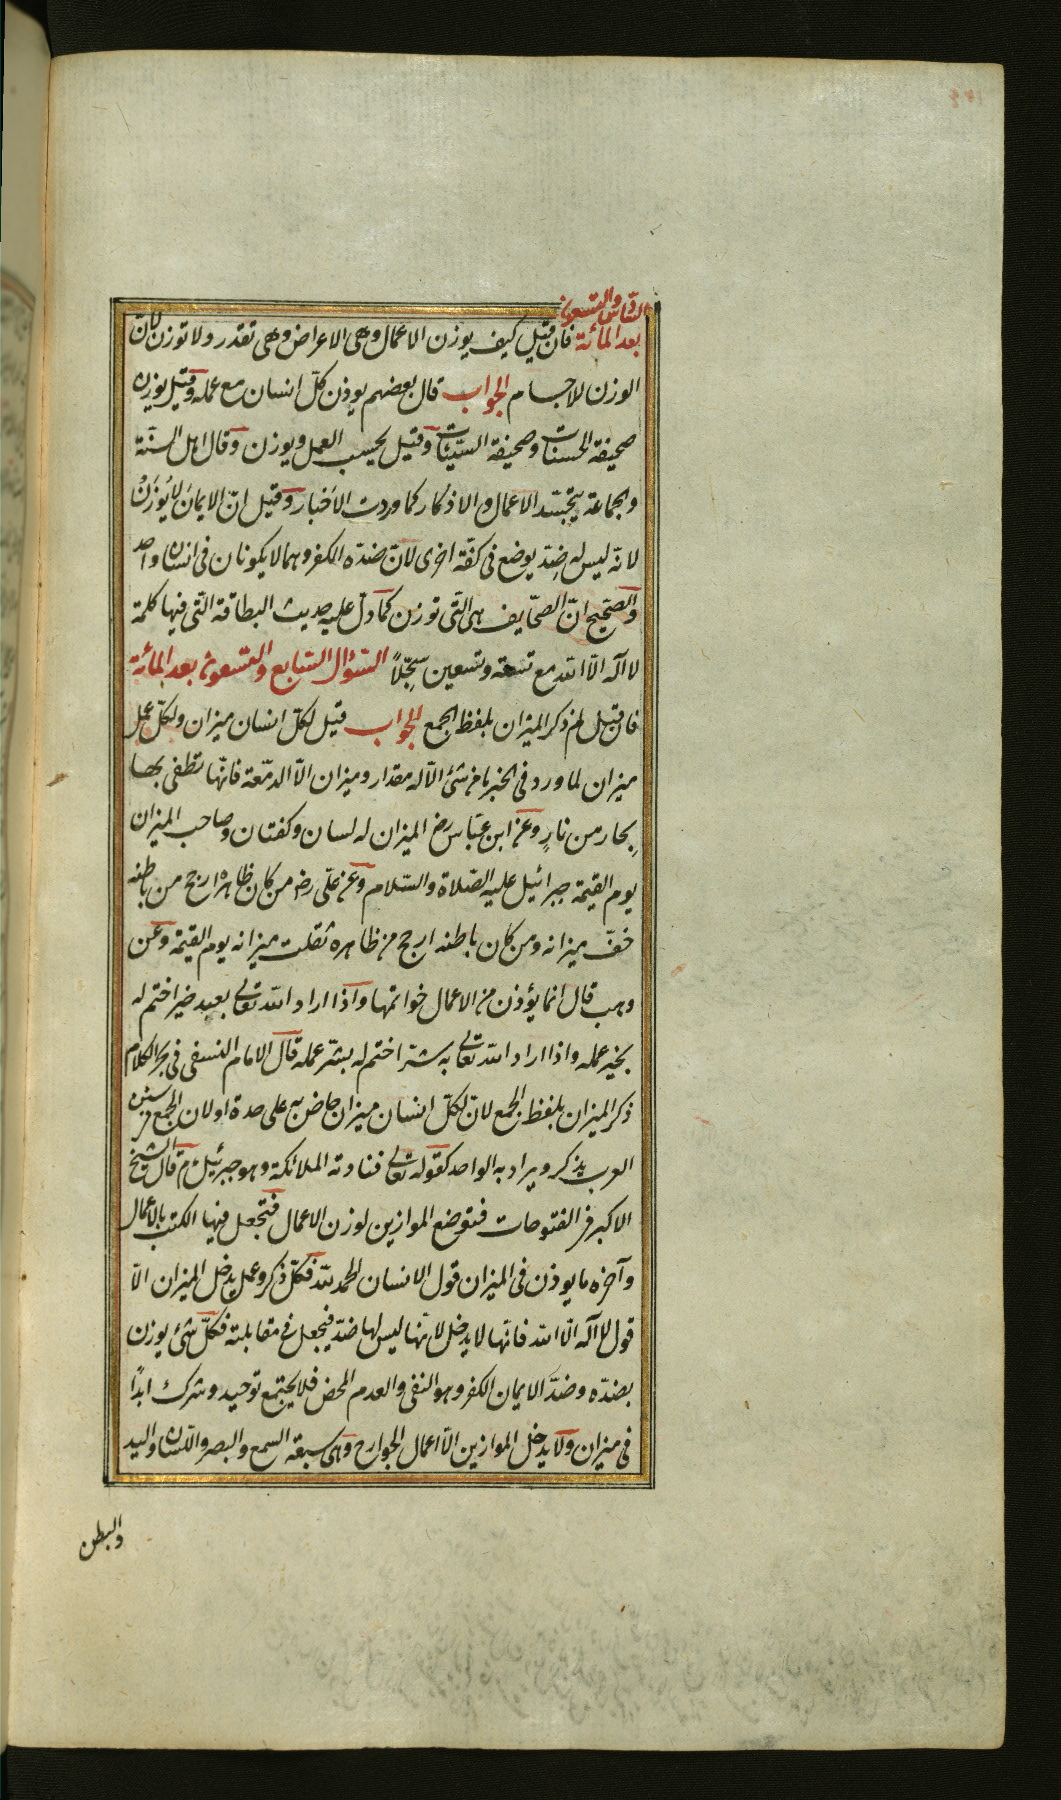 السادس والتسعون
بعد المائة فان قيل كيف يوزن الاعمال وهى الاعراض وهى تقدر ولا توزن لانّ
الوزن للاجسام الجواب قال بعضهم يوذن كلّ انسان مع عمله وقيل يوزن
صحيفة الحسنات وصحيفة السيّئات وقيل بحسب العمل ويوزن وقال اهل السنّة
والجماعة يتجسّد الاعمال والاذكار كما وردت الاخبار وقيل انّ الايمان لا يُوزَنْ
لانّه ليس له ضِدّ يوضع فى كفّة اخرى لانّ ضدّه الكفر وهما لا يكونان فى انسان واحد
والصّحيح انّ الصّحايف هى التّى توزن كما دلّ عليه حديث البطاقة التّى فيها كلمة
لا اله الّا الله مع تسعة وتسعين سِجّلاً السّؤال السّابع والتسعون بعد المائة
فان قيل لم ذكر الميزان بلفظ الجمع الجواب قيل لكلّ انسان ميزان ولكلّ عمل
ميزان لما ورد فى الخبر ما من شئ الّا له مقدار وميزان الّا الدمّعة فانّها تطفى بها
بِحار من نارٍ وعن ابن عبّاس رض الميزان له لسان وكفتان وصاحب الميزان
يوم القيمة جبرائيل عليه الصّلاة والسّلام وعن علّى رض من كان ظاهره ارجح من باطنه
خفّ ميزانه ومن كان باطنه ارجح من ظاهره ثقلت ميزانه يوم القيمة وعن
وهب قال انما يؤذن من الاعمال خواتمها واذا اراد الله تعالى بعبد خيرا ختم له
بخير عمله واذا اراد الله تعالى به شرّا ختم له بشرّ عمله قال الامام النسفى فى بحر الكلام
ذكر الميزان بلفظ الجمع لانّ لكلّ انسان ميزان خاض به على حدة او لان الجمع فى لسان
العرب يذكر ويراد به الواحد كقوله تعالى فنادته الملائكة وهو جبرئيل م قال الشيخ
الاكبر فى الفتوحات فتوضع الموازين لوزن الاعمال فتجعل فيها الكتب بالاعمال
وآخره ما يوذن فى الميزان قول الانسان الحمد لله فكلّ ذكر وعمل يدخل الميزان الّا
قول لا اله الّا الله فانّها لا يدخل لانّها ليس لها ضدّ فيجعل فى مقابلته فكلّ شئ يوزن
بضدّه وضدّ الايمان الكفر وهو النفى والعدم المحض فلا يجتمع توحيد وشرك ابداً
فى ميزان ولا يدخل الموازين الّا اعمال الجوارح وهى سبعة السمع والبصر واللّسان واليد
والبطن